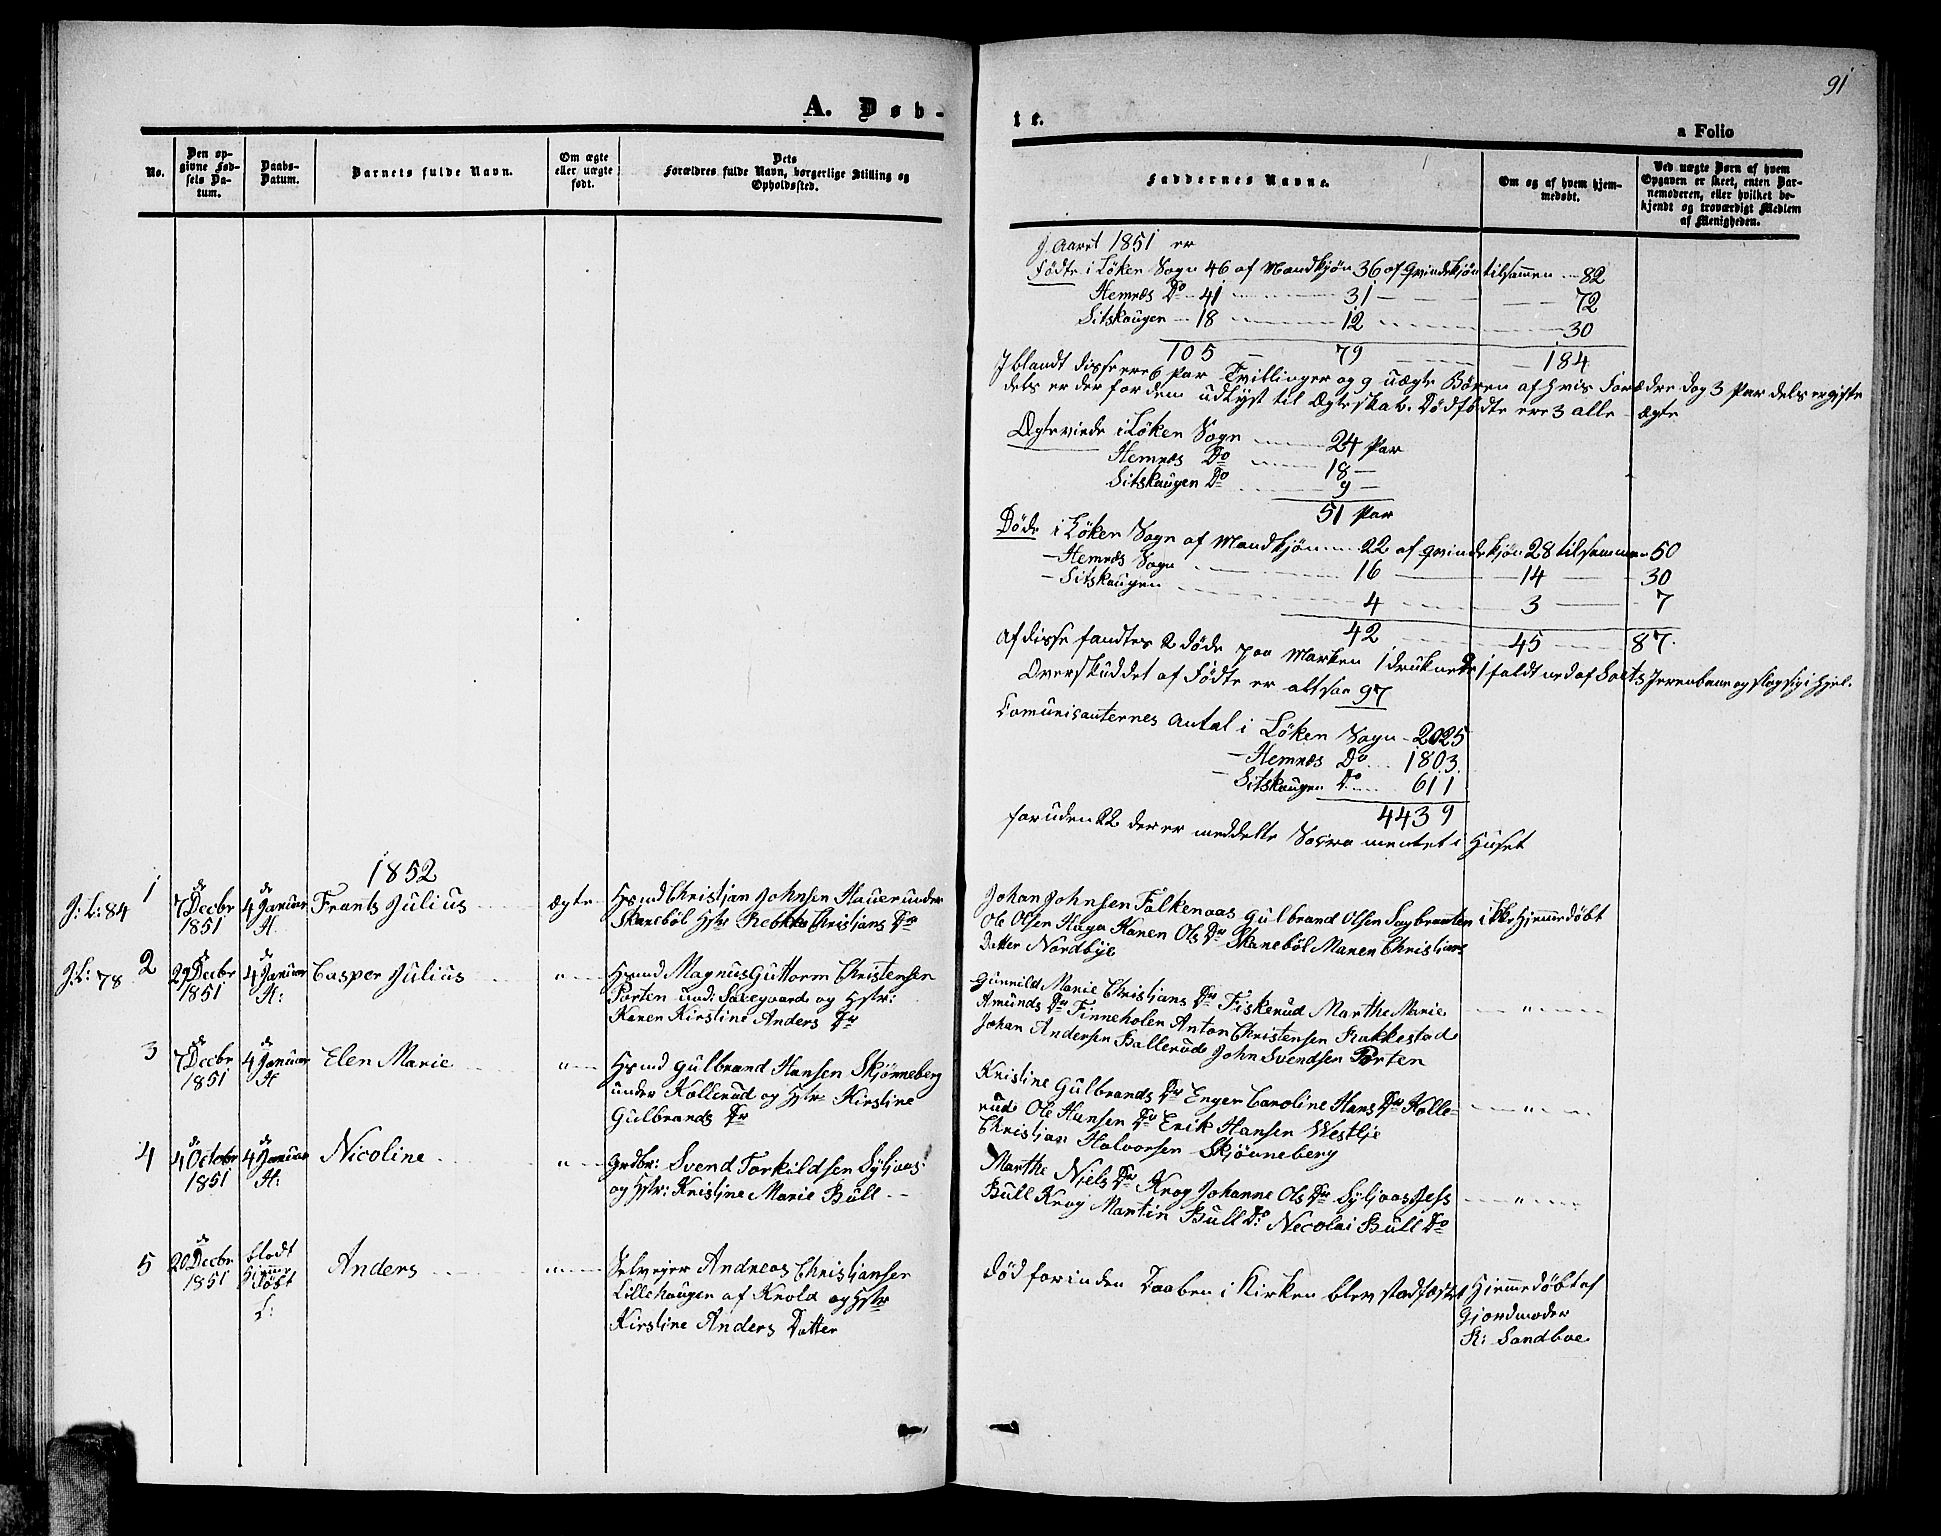 91
A. Døb-
te.
a Folio
No.
Den op-
givne Fød-
sels Da-
tum.
Daabs-
Datum.
Barnets fulde Navn.
Om ægte
eller uægte
født.
Dets
Forældres fulde Navn, borgerlige Stilling og
Opholdssted.
Faddernes Navne.
Om og af hvem hjem-
medøbt.
Ved uægte Børn af hvem
Opgaven er skeet, enten Bar-
nemoderen, eller hvilket be-
kjendt og troværdigt Medlem
af Menigheden.
J Aaret 1851 er
Födte i Löken Sogn 46 af Mandkjön 36 af Qvindekjön tilsammen 82
Hemnæs Do 41 31 72
Sitskaugen 18 12 30
105 79 184
Jblandt disse ere 6 Par Tvillinger og 9 uægte Bören af hvis Forædre dog 3 Par dels er gifte
dels er der for dem udlyst til Ægteskab. Dödfödte ere 3 alle ægte
Ægteviede i Löken Sogn 24 Par
Hemnæs Do 18
Sitskaugen Do 9
51 Par
Döde i Löken Sogn af Mandkjön 22 af qvindekjön 28 tilsammen 50
Hemnæs Sogn 16 14 30
Sitskaugen 4 3 7
42 45 87.
Af disse fandtes 2 döde paa Marken 1 druknede 1 faldt ned af og slog sig ihjel.
Overskuddet af Födte er altsaa 97
Comunicanternes Antal i Löken Sogn 2025
Hemnæs Do 1803
Sitskaugen Do 611
4439
foruden 22 der er meddelte Sacramentet i Huset
1852
J: L: 84
1
7 de Decbr
1851
4 de Januar
H.
Frants Julius
ægte
Hsmd Christjan Johnsen Hauer under
Skaneböl Hstr Rebekka Christjans Dr
Johan Johnsen Falkenaas Gulbrand Olsen Sagbraaten
Ole Olsen Haga Karen Ols Dr Skaneböl Maren Christians
Datter Nordbye
ikke Hjemmedöbt
J.L: 78
2
29 de Decbr
1851
4 de Januar
H:
Casper Julius
"
Hsmd Magnus Guttorm Christensen
Porten und: Saxegaard og Hstr:
Karen Kirstine Anders Dr
Gunnild Marie Christjans Dr Fiskerud Marthe Marie
Amunds Dr Finneholen Anton Christensen Frakkestad
Johan Andersen Ballerud John Svendsen Porten
"
3
7 de Decbr
1851
4 de Januar
H
Elen Marie
"
Hsmd Gulbrand Hansen Skjönneberg
under Kollerud og Hstr Kirstine
Gulbrands Dr
Kristine Gulbrands Dr Enger Caroline Hans Dr Kolle-
rud Ole Hansen Do Erik Hansen Westlje
Christjan Halvorsen Skjönneberg
"
4
4 de Octobr
1851
4 de Januar
H:
Nicoline
"
Grdbr: Svend Torkildsen Syljaas
og Hstr: Kristjne Marie Bull
Marthe Niels Dr Krog Johanne Ols Dr Syljaas Jess
Bull Krog Martin Bull Do Necolai Bull Do
"
5
20 de Decbr
1851
blodt
Hjemme
Döbt
L:
Anders
"
Selvejer Andreas Christjansen
Lillehaugen af Krold og Hstr
Kirstine Anders Datter
Död forinden Daaben i Kirken blev stadfæstet
Hjemmedöbt af
Gjordmoder
K: Sandboe